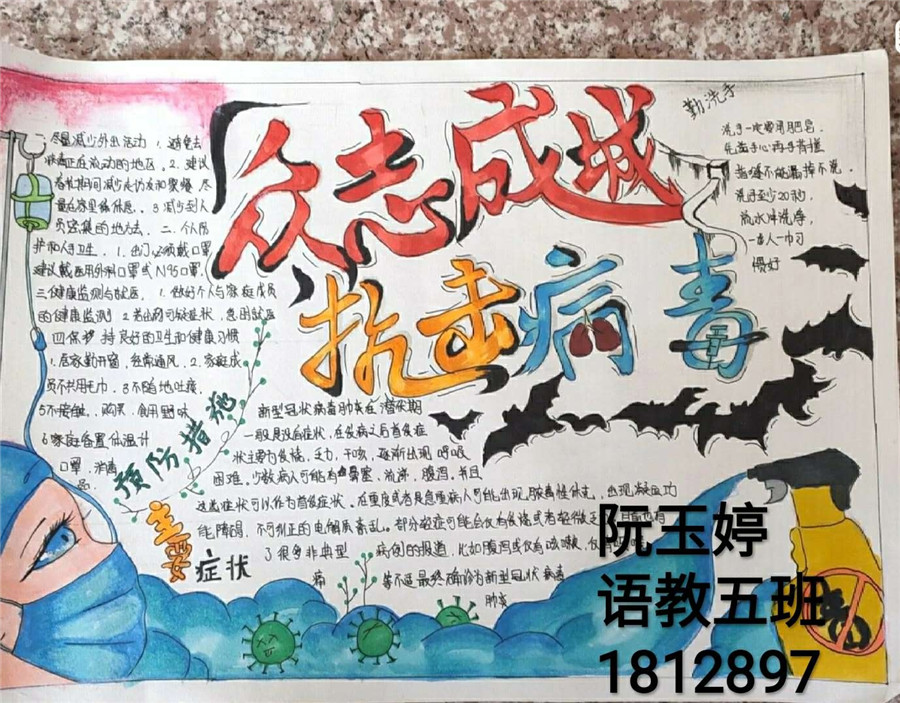 众志成城
抗击病毒
勤洗手
洗手一定要用肥皂.
先洗手心再手背搓
指缝不能漏掉不说.
洗手至少20秒.
流水冲洗净,
一人一巾习
惯好
一、尽量减少外出活动 1. 避免去
疾病正在流动的地区. 2. 建议
春节期间减少走访亲友和聚餐 尽
量在家里休息. 3 减少到人
员密集的地方去. 二. 个人防
护和手卫生. 1. 出门必须戴口罩
建议戴医用外科口罩或N95口罩.
三健康监测与就医. 1. 做好个人与家庭成员
的健康监测 2 若出现可疑症状,
四 保护 持良好的卫生和健康习惯
1. 居家勤开窗, 经常通风. 2. 家庭成
员不共用毛巾. 3 不随地吐痰.
5不接触, 购买, 食用野味
6家庭备置体温计
口罩, 消毒
品.
预防措施
新型冠状病毒肺炎在潜伏期
一般是没有症状, 在发病之后首发症
状主要为发烧, 乏力, 干咳, 逐渐出现 呼吸
困难. 少数病人可能有鼻塞, 流涕, 腹泻, 并且
这些症状可以作为首发症状. 在重度或者是危重病人可能出现脓毒性休克, 出现凝血功
能障碍, 不可纠正的电解质紊乱. 部分轻症可能会仅有发烧或者轻微乏
了很多非典型 病例的报道, 比如腹泻或仅有咳嗽,
病 等不适最终确诊为新型冠状病毒
肺炎
主要
症状
阮玉婷
语教五班
1812897